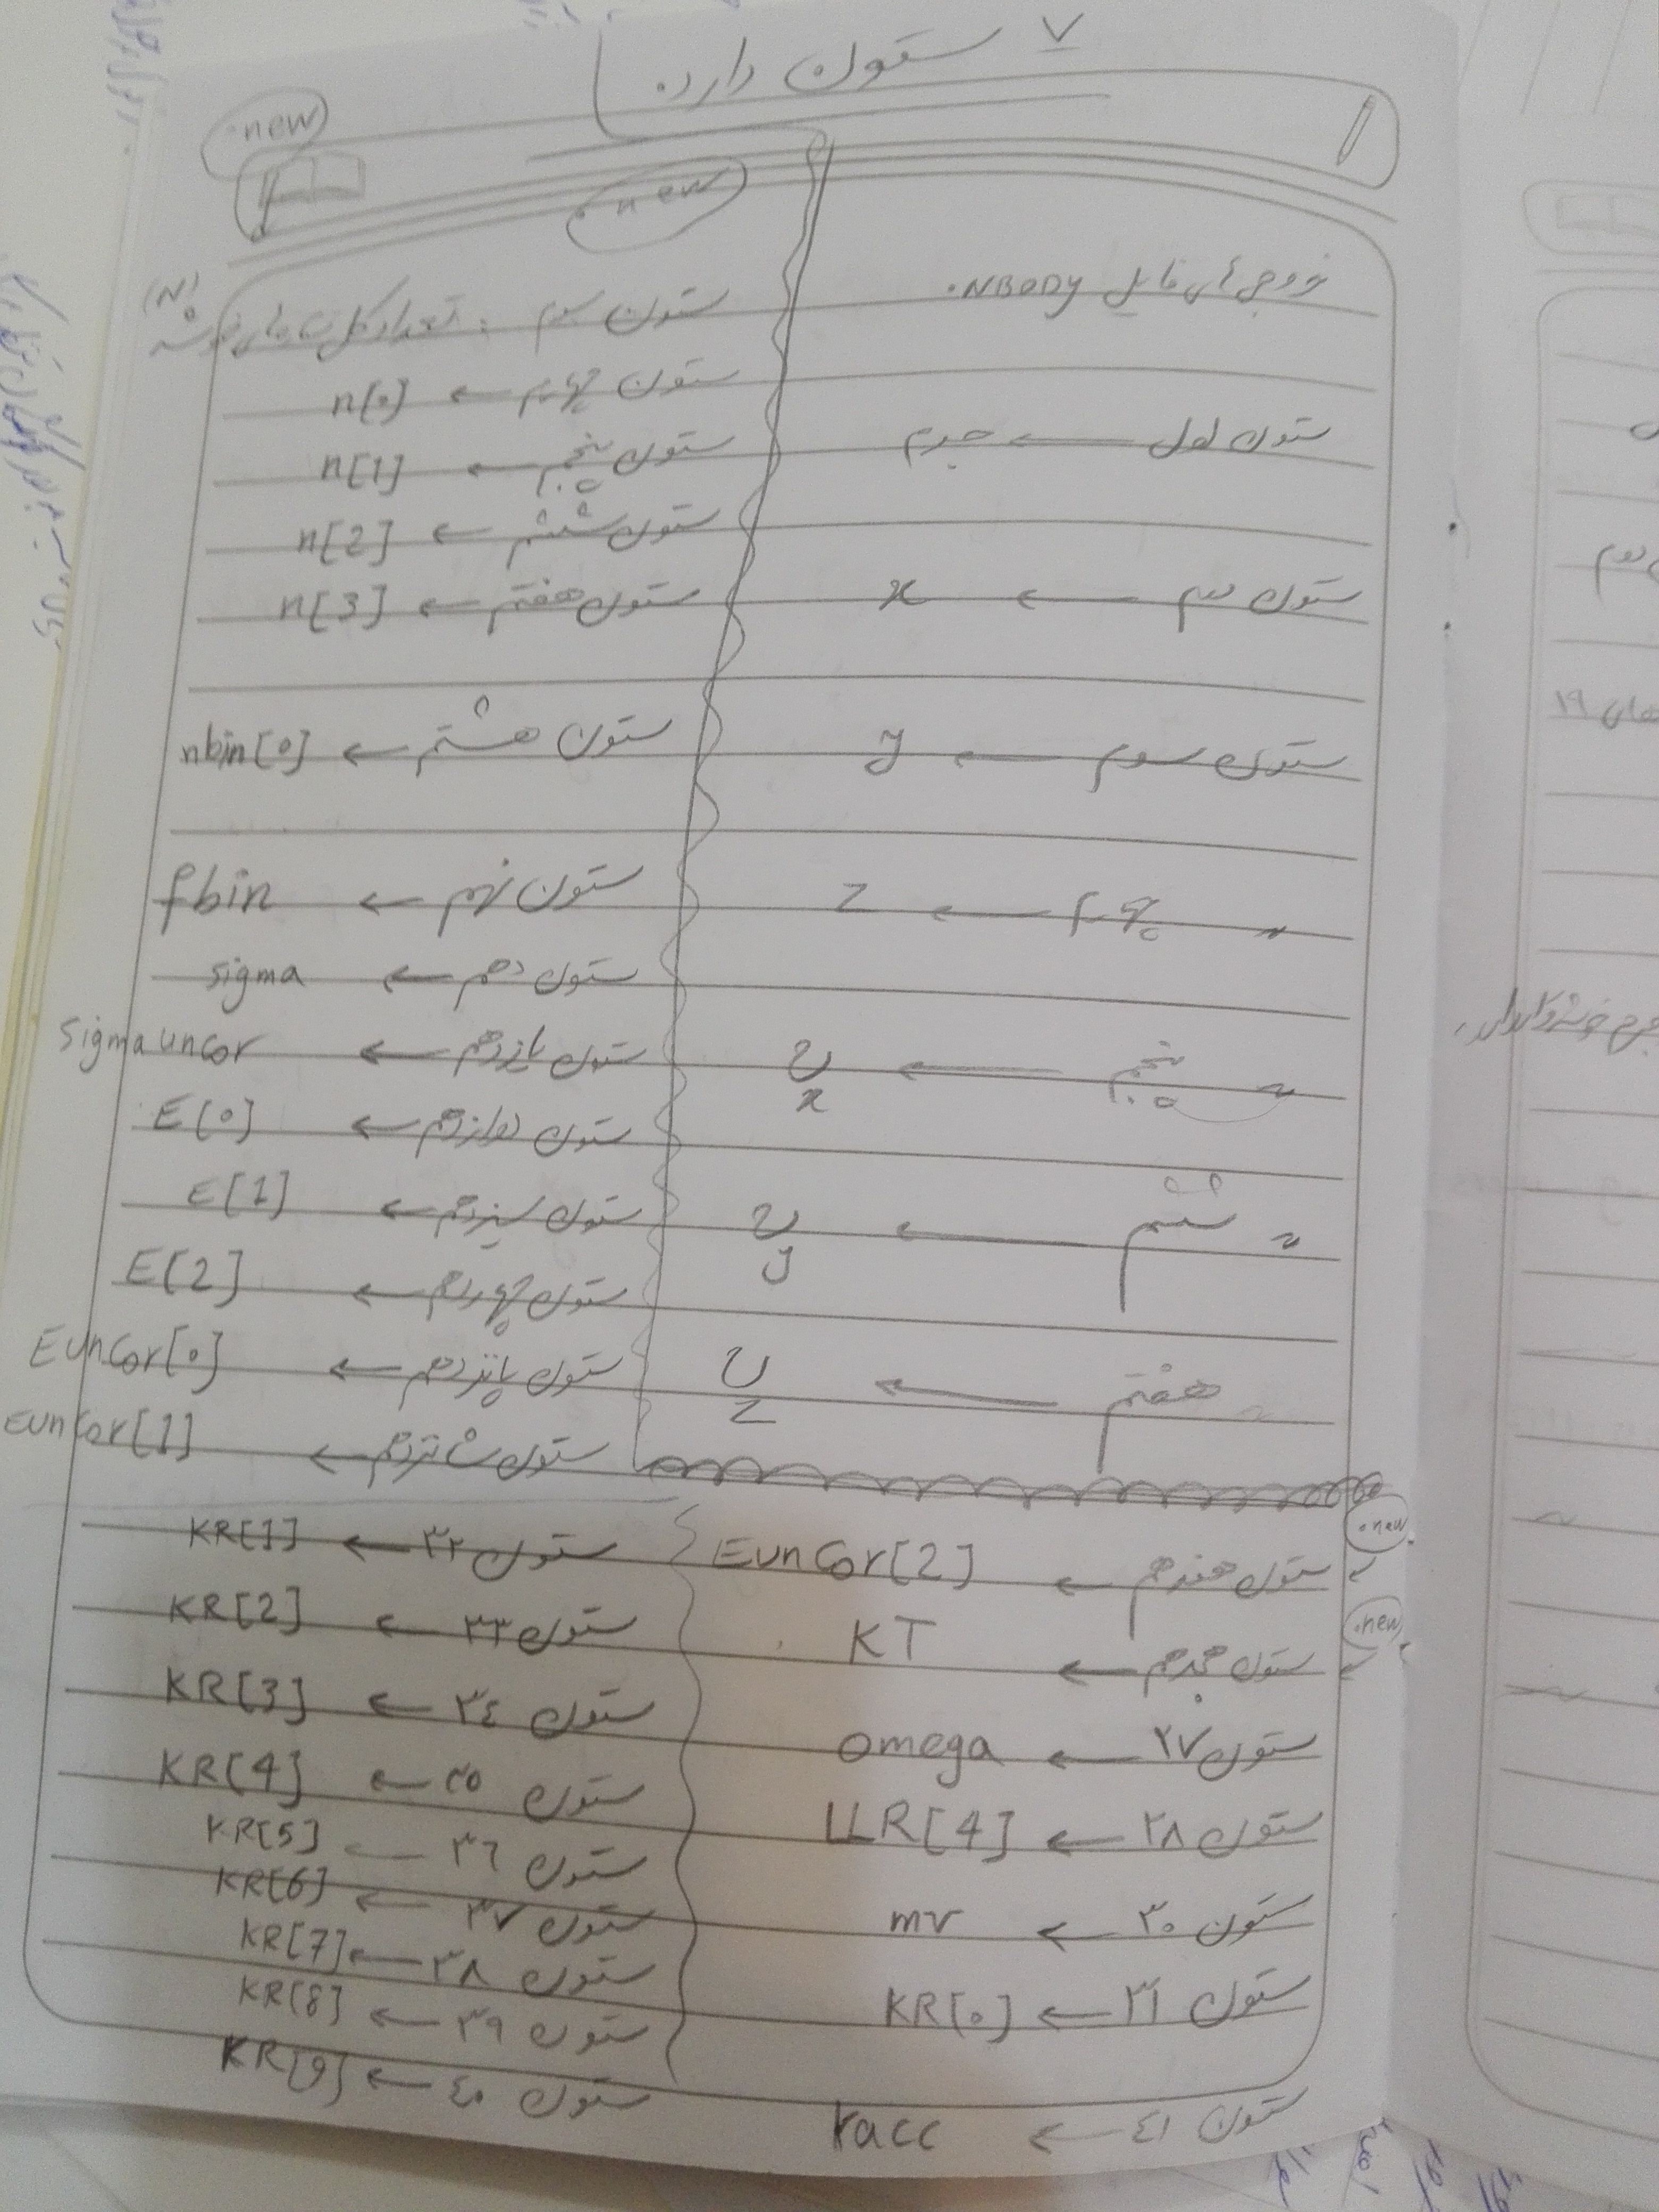 ۷ ستون دارد.
.new
.new
خروجی های فایل NBODY.
ستون اول ← جرم
ستون دوم ← x
ستون سوم ← y
〃 چهارم ← z
〃 پنجم ← v x
〃 ششم ← v y
〃 هفتم ← v z
(N)
ستون سوم : تعداد کل ستاره های خوشه
ستون چهارم ← n[0]
ستون پنجم ← n[1]
ستون ششم ← n[2]
ستون هفتم ← n[3]
ستون هشتم ← nbin[0]
ستون نهم ← fbin
ستون دهم ← sigma
ستون یازدهم ← Sigmauncor
ستون دوازدهم ← E[0]
ستون سیزدهم ← E[1]
ستون چهاردهم ← E[2]
ستون پانزدهم ← EunCor[0]
ستون شانزدهم ← EunCor[1]
.new
ستون هفدهم ← EunCor[2]
.new
ستون هجدهم ← KT
ستون ۲۷ ← omega
ستون ۲۸ ← LLR[4]
ستون ۳۰ ← mv
ستون ۳۱ ← KR[0]
ستون ۳۲ ← KR[1]
ستون ۳۳ ← KR[2]
ستون ۳٤ ← KR[3]
ستون ۳۵ ← KR[4]
ستون ۳٦ ← KR[5]
ستون ۳۷ ← KR[6]
ستون ۳۸ ← KR[7]
ستون ۳۹ ← KR[8]
ستون ٤۰ ← KR[9]
ستون ٤۱ ← racc
های ۱۹